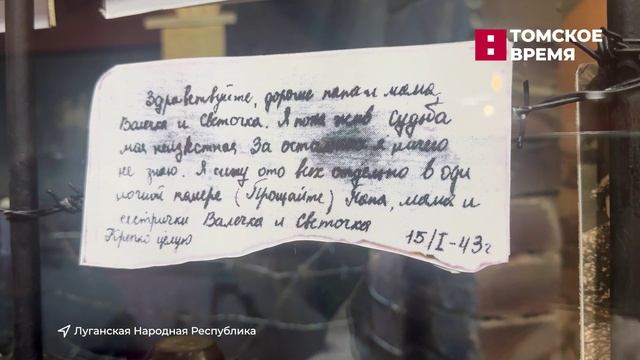 ТОМСКОЕ
ВРЕМЯ
Здравствуйте, дорогие папа и мама,
Валечка и Светочка. Я пока жив Судьба
моя неизвестная За остальных я ничего
не знаю. Я сижу ото всех отдельно в оди
ночной камере (Прощайте) Папа, мама и
сестрички Валечка и Светочка
Крепко целую
15/I-43г
Луганская Народная Республика